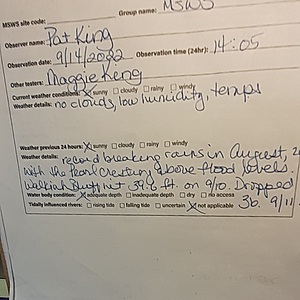 MSWS site code: Group name: MSWS
Observer name: Pat King
Observation date: 9/14/2022 Observation time (24hr): 14:05
Other testers: Maggie King
Current weather conditions: X sunny cloudy rainy windy
Weather details: no clouds, low humidity, temps
Weather previous 24 hours: X sunny cloudy rainy windy
Weather details: record breaking rains in August,
with the Pearl cresting above flood levels.
ft. on 9/10. Dropped
Water body condition: X adequate depth inadequate depth dry no access
36. 9/11
Tidally influenced rivers: rising tide falling tide uncertain X not applicable